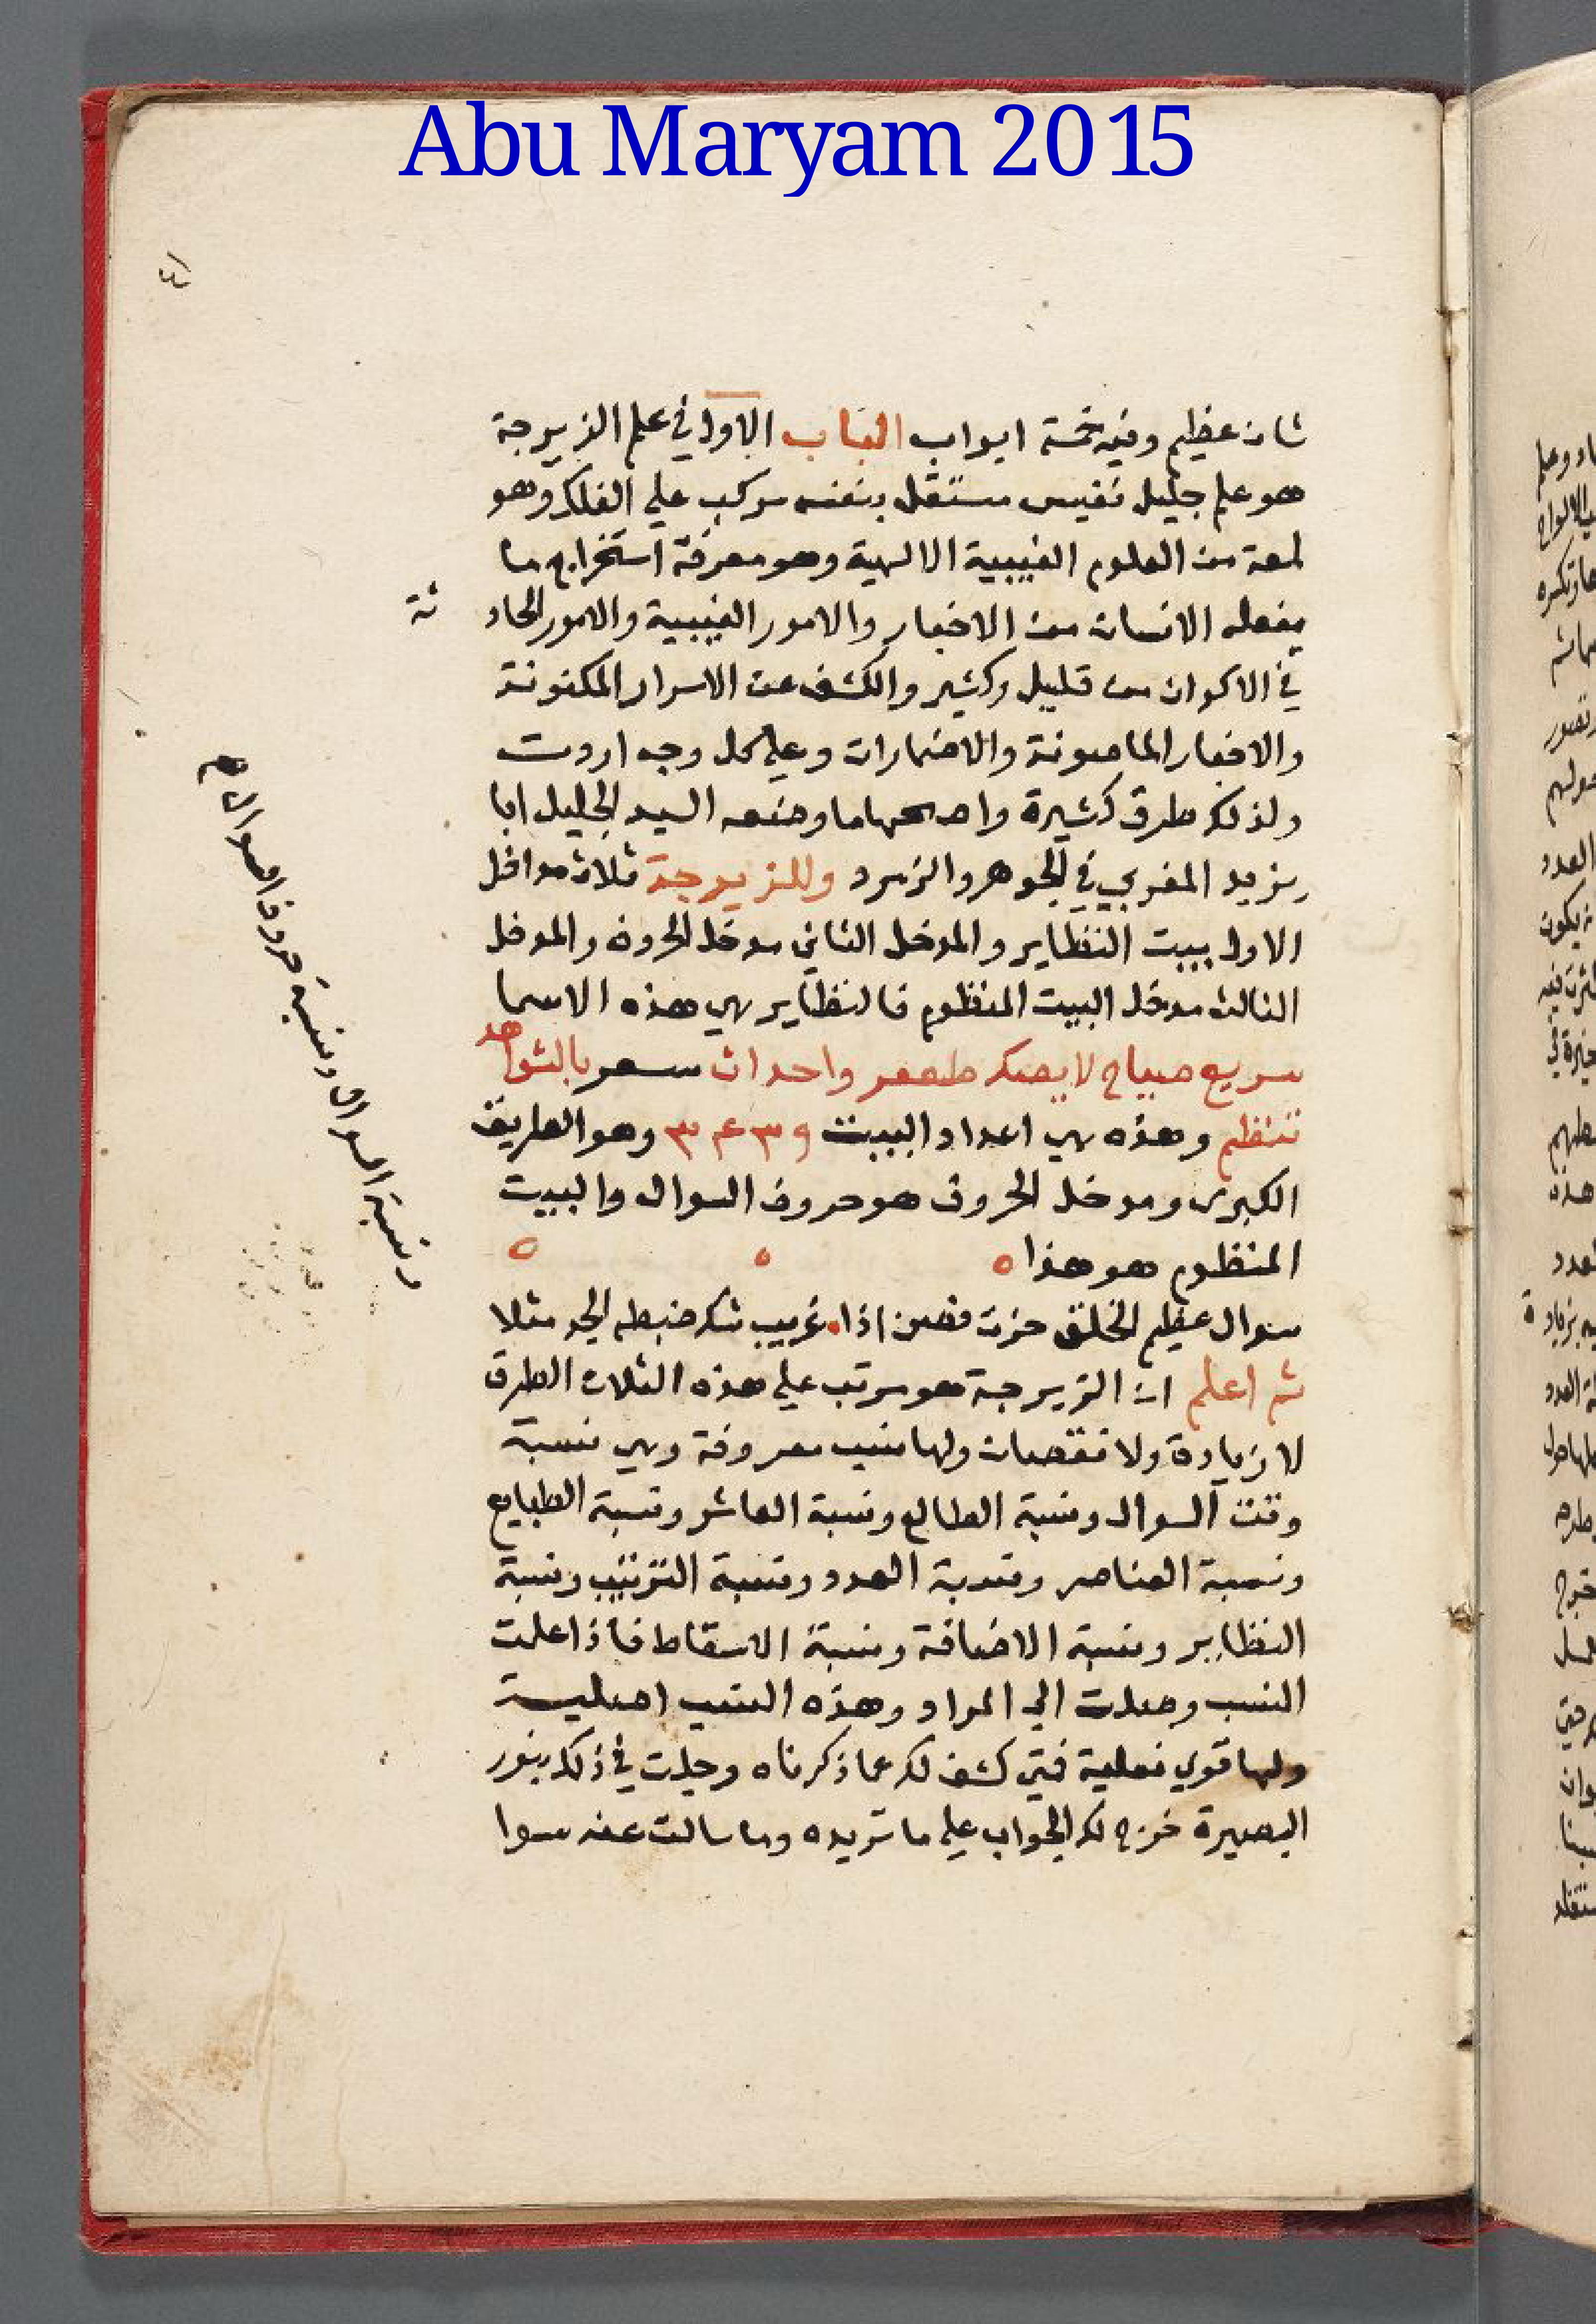 Abu Maryam 2015
٤١
شان عظيم وفيه خمسة ابواب الباب الاول في علم الزيرجة
هو علم جليل نفيس مستقل بنفسه مركب علي الفلك وهو
لمعة من العلوم الغيبية الالهية وهو معرفة استخراج ما
يفعله الانسان من الاخبار والامور الغيبية والامور الحاد ثة
في الاكوان من قليل وكثير والكشف عن الاسرار المكنونة
والاخبار المامونة والاضمارات وعلي كل وجه اردت
ولذلك طرق كثيرة واصحها ما وضعه السيد الجليل ابا
يزيد المغربي في الجوهر والزمرد وللزيرجة ثلاث مداخل
الاول ببيت النظاير والمدخل الثاني مدخل الحروف والمدخل
الثالث مدخل البيت المنظوم فالنظاير هي هذه الاسما
سريع صباح لا بالشواهد
تنتظم وهذه هي اعداد البيت وهو الطريق
الكبري ومدخل الحروف هو حروف السوال والبيت
المنظوم هو هذا
سوال عظيم الخلق حزت فصن اذا غريب شك ضبطه الجد مثلا
ثم اعلم ان الزيرجة هو مرتب علي هذه الثلاث الطرق
لا زيادة ولا نقصان ولها نسب معروفة وهي نسبة
وقت السوال ونسبة الطالع ونسبة العاشر ونسبة الطبايع
ونسبة العناصر ونسبة العدد ونسبة الترتيب ونسبة
النظاير ونسبة الاضافة ونسبة الاسقاط فاذا علمت
النسب وصلت الي المراد وهذه النسب اصلية
ولها قوي فعلية فتي كشف لك عما ذكرناه وجلت في ذلك بنور
البصيرة خرج لك الجواب علي ما تريده وما سالت عنه سوا
ونسبة السوال ونسبة حروف السوال